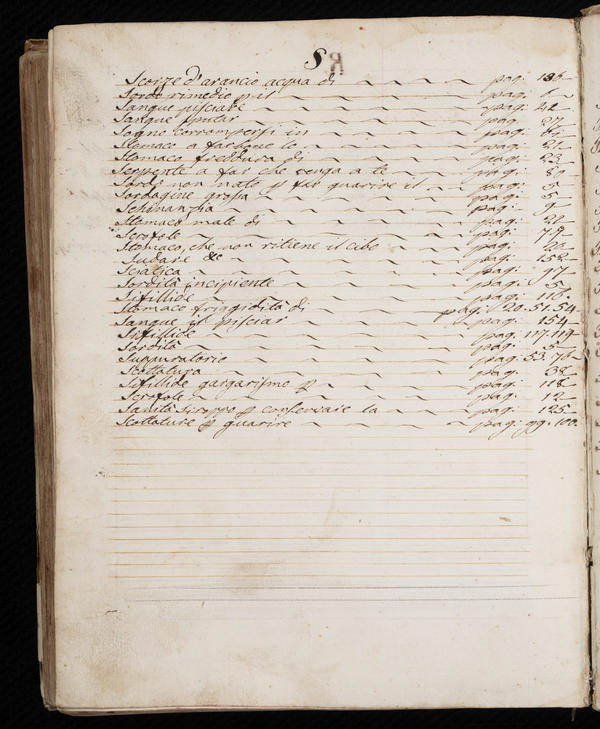 S
Scorze d'arancio acqua di pag:
Sordi rimedio p il pag: 6
Sangue pisciare pag: 21
Sangue sputar pag: 27
Sogno corrompersi in pag:
Stomaco a farbone lo pag: 21
Stomaco freddura di pag: 23
Serpente a far che venga a te pag: 80
Sordi non nato p far guarire il pag: 5
Sordagine grossa pag: 5
Schinanzia pag: 9
Stomaco male di pag: 21
Scrofole pag: 79
Stomaco, che non ritiene il cibo pag: 20
Sudare &c pag: 152
Sciatica pag: 97
Sordità incipiente pag: 5
Sifillide pag: 116
Stomaco fringidità di pag: 20. 51. 54
Sangue il pisciar pag: 154
Sifillide pag: 117. 119
Sordità pag: 5
Supuratorio pag: 53. 76
Scottatura pag: 38
Sifillide gargarismo p pag: 118
Scrofole pag: 12
Sanità Siroppo p conservare la pag: 125
Scottature p guarire pag: 99. 100